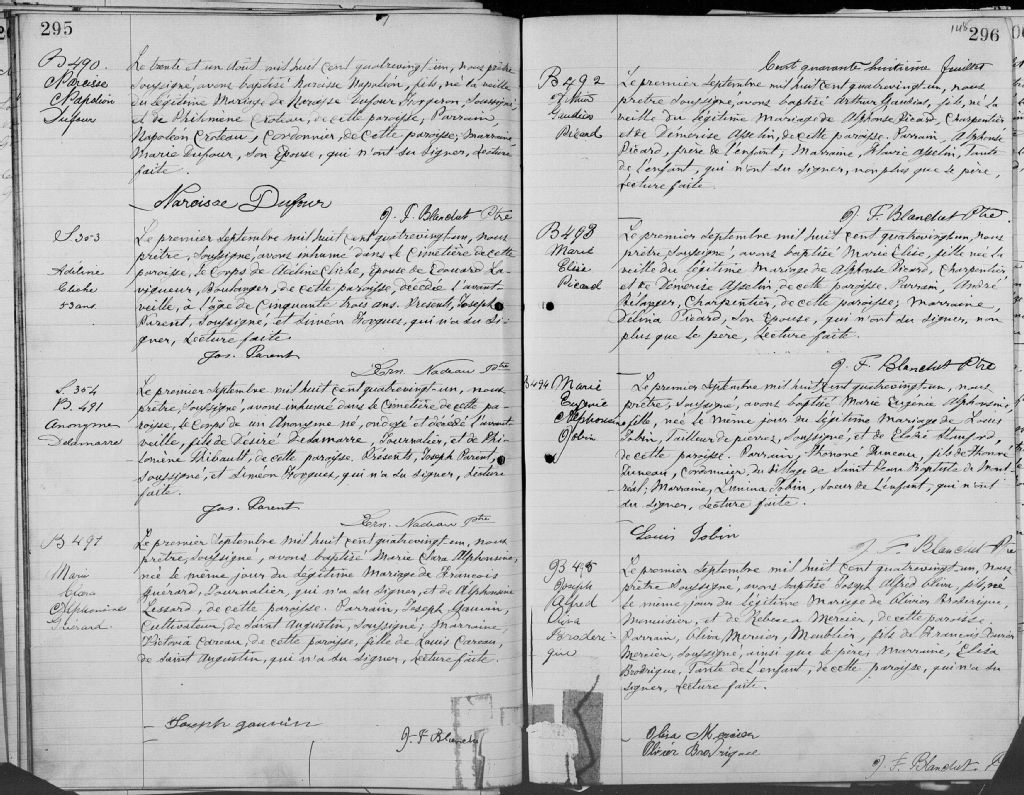 295
B 490.
Narcisse
Napoléon
Dufour
Le trente et un Août mil huit cent quatrevingt-un, nous prêtre
soussigné, avons baptisé Narcisse Napoléon, fils, né la veille
du légitime Mariage de Narcisse Dufour Forgeron, soussigné
et de Philomène Croteau, de cette paroisse, Parrain,
Napoléon Croteau, Cordonnier, de cette paroisse; Marraine
Marie Dufour, Son Epouse, qui n'ont su signer, Lecture
faite.
Narcisse Dufour
J. F. Blanchet Ptre
S. 353
Adéline
Cliche
53 ans
Le premier Septembre mil huit cent quatrevingt-un, nous
prêtre, soussigné, avons inhumé dans le Cimetière de cette
paroisse, le Corps de Adéline Cliche, Epouse de Edouard La-
vigueur, Boulanger, de cette paroisse, décédée l'avant
veille, à l'âge de Cinquante trois ans. Présents, Joseph
Parent, Soussigné, et Siméon Hogues, qui n'a su si-
gner, Lecture faite
Jos. Parent
Ern. Nadeau Ptre
S. 354
B. 491
Anonyme
Delamarre
Le premier Septembre mil huit cent quatrevingt-un, nous
prêtre, soussigné, avons inhumé dans le Cimetière de cette pa-
roisse, le Corps de un Anonyme né, ondoyé et décédé l'avant
veille, fils de Désiré Delamarre, Journalier, et de Phi-
lomène Thibault, de cette paroisse. Présents, Joseph Parent,
soussigné, et Siméon Hogues, qui n'a su signer, Lecture
faite.
Jos. Parent
Ern. Nadeau Ptre
B 491
Marie
Clara
Alphonsine
Guérard
Le premier Septembre mil huit cent quatrevingt-un, nous
prêtre, soussigné, avons baptisé Marie Clara Alphonsine,
née le même jour du légitime Mariage de François
Guérard, Journalier, qui n'a su signer, et de Alphonsine
Lessard, de cette paroisse. Parrain, Joseph Gauvin,
Cultivateur, de Saint Augustin, soussigné; marraine
Victoria Careau, de cette paroisse, fille de Louis Careau,
de Saint Augustin, qui n'a su signer, Lecture faite.
Joseph gauvin
J. F Blanchet
148
296
Cent quarante huitième feuillet
B 492
Arthur
Gaudias
Picard
Le premier Septembre mil huit cent quatrevingt-un, nous
prêtre soussigné, avons baptisé Arthur Gaudias, fils, né la
veille du légitime mariage de Alphonse Picard, Charpentier
et de Démerise Asselin, de cette paroisse. Parrain, Alphonse
Picard, frère de l'enfant; Marraine, Flavie Asselin, Tante
de l'enfant, qui n'ont su signer, non plus que le père,
Lecture faite.
J. F. Blanchet Ptre
B 493
Marie
Elise
Picard
Le premier Septembre mil huit cent quatrevingt-un, nous
prêtre soussigné, avons baptisé Marie Elise, fille née la
veille du légitime mariage de Alphonse Picard, Charpentier
et de Démerise Asselin, de cette paroisse, Parrain, André
Bélanger, Charpentier, de cette paroisse; marraine
Délina Picard, Son Epouse, qui n'ont su signer, non
plus que le père, Lecture faite.
J. F. Blanchet Ptre
B 494
Marie
Eugénie
Alphonsine
Jobin
Le premier Septembre mil huit cent quatrevingt-un, nous
prêtre, soussigné, avons baptisé Marie Eugénie Alphonsine,
fille, née le même jour du légitime mariage de Louis
Jobin, Tailleur de pierres, Soussigné, et de Claire
de cette paroisse. Parrain, Honoré Juneau, fils de Honoré
Juneau, Cordonnier du Village de Saint Jean Baptiste de Mont
réal; Marraine, Limina Jobin, Soeur de L'enfant, qui n'ont
su signer, Lecture faite.
Louis Jobin
J. F. Blanchet Ptre
B 495
Joseph
Alfred
Oliva
Broderi-
que
Le premier Septembre mil huit cent quatrevingt-un, nous
prêtre soussigné, avons baptisé Joseph Alfred Oliva, fils, né
le même jour du légitime Mariage de Olivier Broderique,
Menuisier, et de Rebecca Mercier, de cette paroisse.
Parrain, Oliva Mercier, Meublier, fils de François
Mercier, soussigné, ainsi que le père; Marraine, Elisa
Brodrique, Tante de L'enfant, de cette paroisse, qui n'a su
signer, Lecture faite.
Oliva Mercier
Olivier Brodrique
J. F. Blanchet P